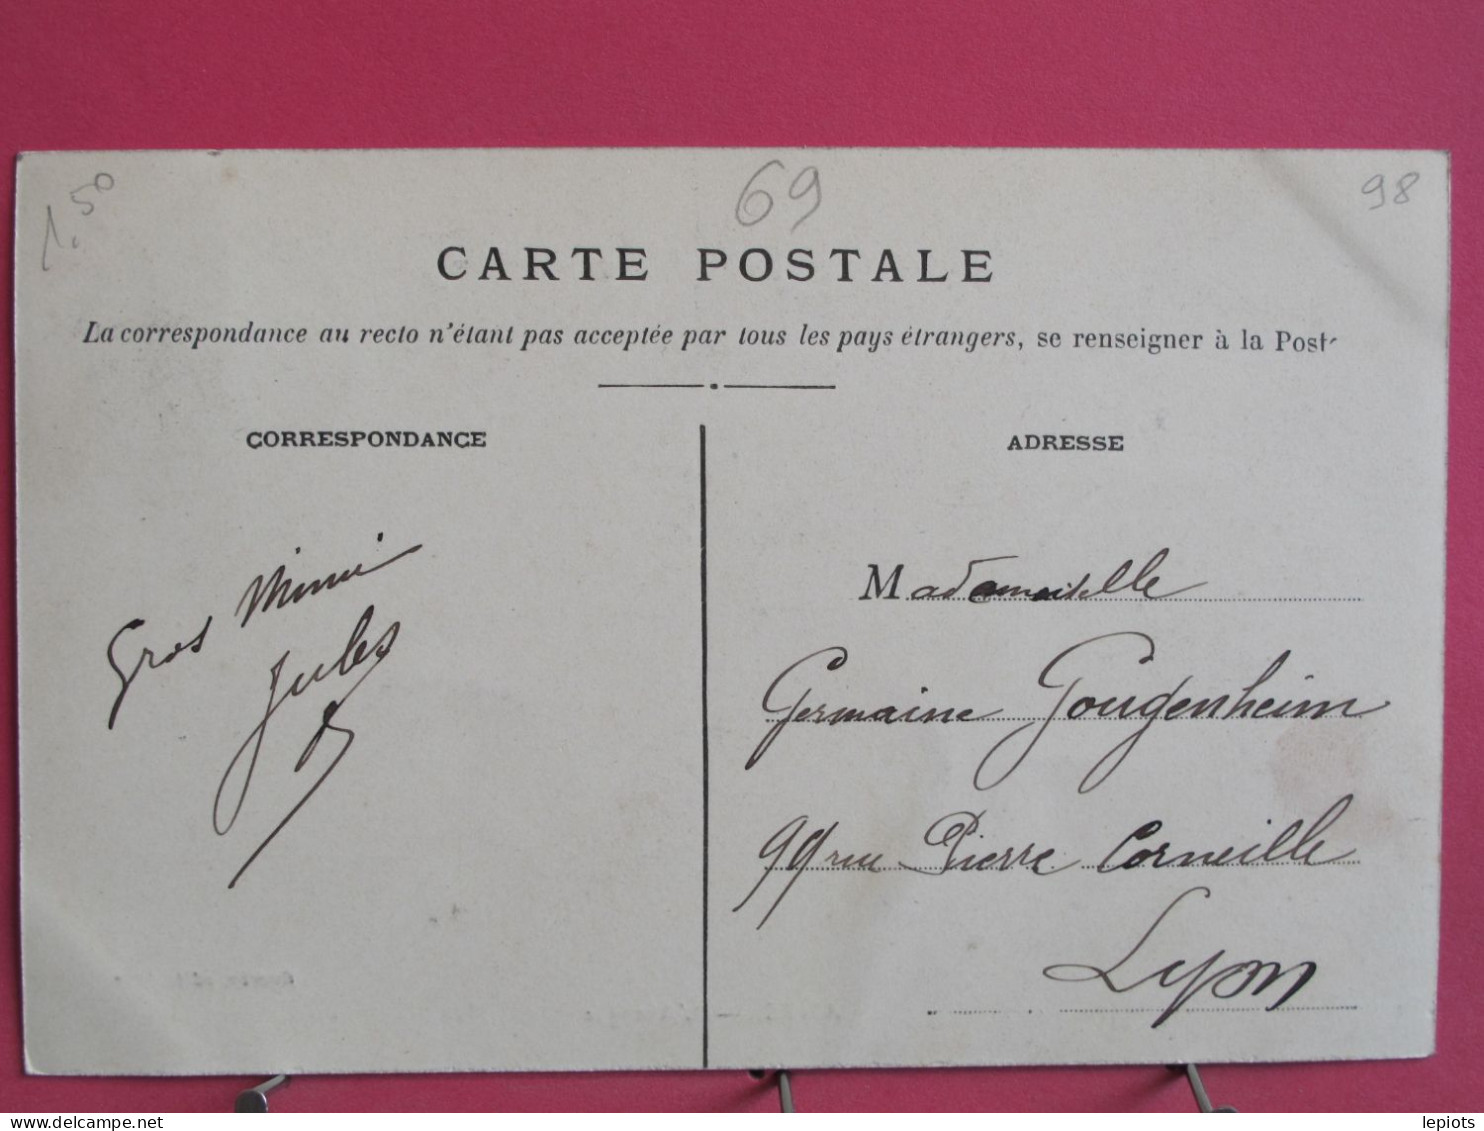 1.50
69
98
CARTE POSTALE
La correspondance au recto n'étant pas acceptée par tous les pays étrangers, se renseigner à la Post
CORRESPONDANCE
Gros Mimi
Jules
ADRESSE
Mademoiselle
Germaine Gougenheim
99 rue Pierre Corneille
Lyon
delcampe.net
lepiots